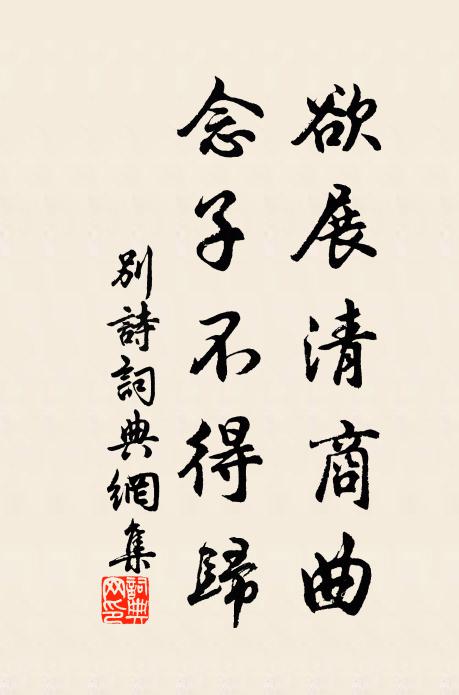 欲展清商曲
念子不得歸
別詩詞典網集
詞典網印